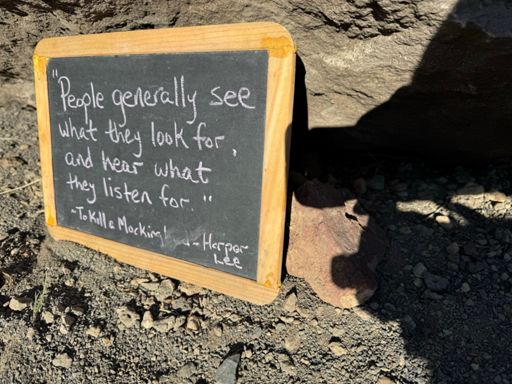 "People generally see
what they look for,
and hear what
they listen for."
~To Kill a Mocking - Harper
Lee